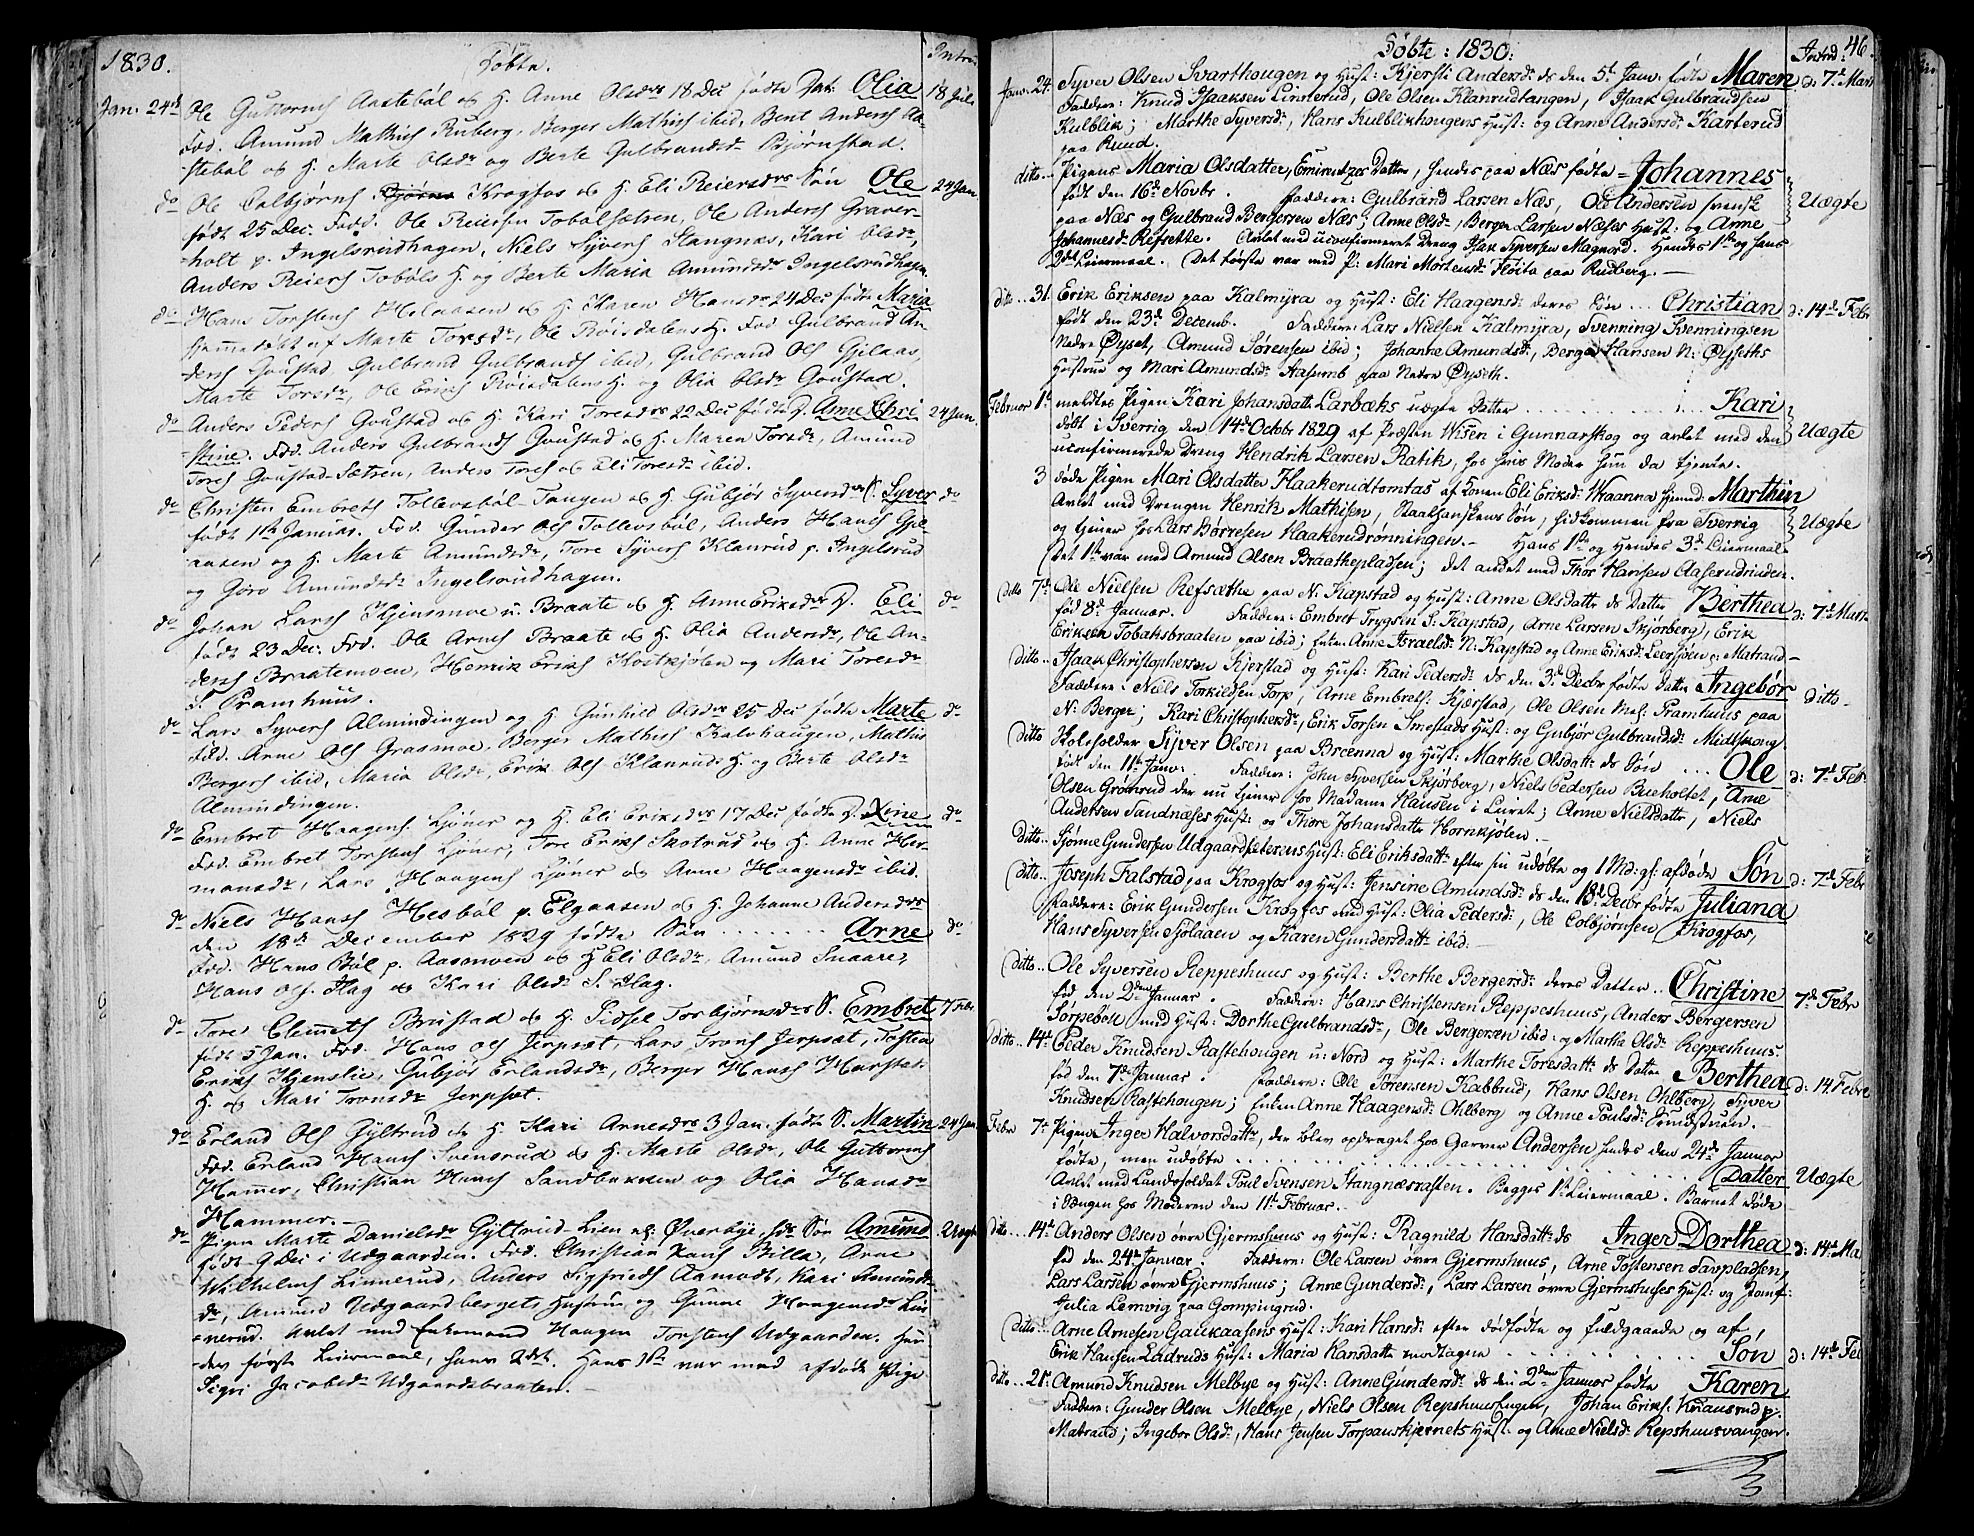 1830. Döbte. Intro.
Jan. 24de Ole Guttorms Aastebøl og H. Anne Olsdrs 18 Dec födte Dat. Olia 18 Juli
Fad. Amund Mathies Ruberg, Berger Mathies ibid, Bent Anders Aa-
stebøl og H. Marte Olsdr og Berte Gulbrandsdr Bjørnstad.
do Ole Colbjørns Krogfos og H. Eli Reiersdrs Sön Ole 24 Jan
födt 25 Dec. Fad. Ole Reiersen Tobølsætren, Ole Anders Graver-
holt p. Ingelsrudhagen, Niels Syvers Stangnæs, Kari Olsdr,
Anders Reiers Tobøls H. og Berte Maria Amundsdr Ingelsrudhagen
do Hans Torstens Helgaasen og H. Karen Hansdrs 24 Dec födte Maria
hjemmedöbt af Marte Toresdr, Ole Röisdalens H. Fad Gulbrand An
ders Goustad Gulbrand Gulbrands ibid, Gulbrand Ols Gjilaas,
Marte Toresdr, Ole Eriks Röisdalens H. og Olia Olsdr Goustad.
do Anders Peders Goustad og H. Kari Toresdrs 22 Dec födte D. Anne Chri 24 Jan.
stine. Fad. Anders Gulbrands Goustad og H. Maren Toresdr, Amund
Tores Goustad-Sætren, Anders Tores og Eli Toresdr ibid.
do Christen Embrets Tollevsbøl-Tangen og H. Gubjör Syversdrs S. Syver do
födt 1ste Januar. Fad. Gunder Ols Tollevsbøl, Anders Hans Gjil-
aasen og H. Marte Amundsdr, Tore Syvers Klanrud p. Ingelsrud
og Göro Amundsdr Ingelsrudhagen.
do Johan Lars Kjensmoe u. Braate og H. Anne Eriksdrs D. Eli do
födt 23 Dec. Fad. Ole Arnes Braate og H. Olia Andersdr, Ole An-
ders Braatemoen, Henrik Eriks Kostkjölen og Mari Toresdr
S. Pramhuus.
do Lars Syvers Almindingen og H. Gunhild Olsdrs 25 Dec födte Marte do
Fad. Arne Ols Grasmoe, Berger Mathies Kalvhaugen, Mathis
Bergers ibid, Maria Olsdr, Erik Ols Klanruds H. og Berte Olsdr
Almindingen.
do Embret Haagens Ljöner og H. Eli Eriksdrs 17 Dec födte D. Line do
Fad. Embret Torstens Ljöner, Tore Eriks Skotrud og H. Anne Her-
mansdr, Lars Haagens Ljöner og Anne Haagensdr ibid.
do Niels Hans Hesbøl p. Elgaasen og H. Johanne Andersdrs
den 18de December 1829 födte Sön ....... Arne do
Fad. Hans Bøl p. Aasmoen og H Eli Olsdr, Amund Snaare,
Hans Ols. Slag og Kari Olsdr S. Slag.
do Tore Clemets Brustad og H. Sidsel Torbjørnsdrs S. Embret 7 Febr.
födt 5 Jan. Fad. Hans Ols Jerpsæt, Lars Trons Jerpsæt, Tosten
Eriks Kjenslie, Gubjör Erlandsdr, Berger Hans Harstads
H. og Mari Tronsdr Jerpsæt.
do Erland Ols Gyltrud og H. Kari Arnesdrs 3 Jan. födte S. Martin 24 Jan.
Fad. Erland Hans Svensrud og H. Marte Olsdr, Ole Guttorms
Hammer, Christian Hans Sandbakken og Olia Hansdr
Hammer.
do Pigen Marte Danielsdr Gyltrud Lien og Øverbye, hds Sön Amund Uægte
födt 9 Dec i Udgaarden. Fad. Christian Hans Billa, Arne
Wilhelms Linnerud, Anders Sigfrieds Aamodt, Kari Amunds
dr, Amund Udgaardbergets Hustrue og Gunne Haagensdr Lin
nerud. Avlet med Enkemand Haagen Torstens Udgaarden. Hen
des første Leiermaal, hans 2det. Hans 1ste var med afdöde Pige
Sigri Jacobsdr Udgaardsbraaten.
Döbte: 1830. Introd: 46.
Janv. 24. Syver Olsen Svarthougen og Hust: Kjersti Andersdr ds den 5t Janv. födte Maren d: 7d Mart
Faddere: Knud Isaaksen Linnerud, Ole Olsen Klanrudtangen, Isaak Gulbrandsen
Kulblik; Marthe Syversdr, Hans Kulblikhougens Hust: og Anne Andersdr Karterud
paa Rund.
ditto .. Pigens Maria Olsdatter, Emirentzes Datter, hendes paa Næs födte = Johannes
födt den 16de Novbr. Faddere: Gulbrand Larsen Næs, Ole Andersen svensk Uægte
paa Næs og Gulbrand Bergersen Næs; Anne Olsdr, Berger Larsen Næses Hust: og Anne
Johannesdr Refsette. Avlet med uconfirmeret Dreng Isak Syversen Magnord. Hendes 1ste og hans
2det Leiermaal. (Det første var med P: Mari Mortensdr Floita paa Rudberg. -
ditto .. 31. Erik Eriksen paa Kalmyra og Hust: Eli Haagensdr deres Sön ... Christian d: 14de Febr
födt den 23de Decemb. Faddere: Lars Nielsen Kalmyra, Svenning Svenningsen
Nedre Øyset, Amund Sørensen ibid; Johanne Amundsdr, Berger Hansen N: Øyseths
Hustrue og Mari Amundsdr Aaserud paa Nedre Øyseth.
Februar 1ste meldtes Pigen Kari Johansdatter Larbæks uægte Datter .......... Kari
döbt i Sverrig den 14de Octobr 1829 af Præsten Wisen i Gunnarskog og avlet med den Uægte
uconfirmerede Dreng Hendrik Larsen Ratik, hos hvis Moder hun da tjente.
3 døde Pigen Mari Olsdatter Haakerudtomtas af Konen Eli Eriksdr Wraanna hjemd: Marthin
Avlet med Drengen Henrik Mathisen, Staalhanskens Sön, hidkommen fra Sverrig
og tjener hos Lars Børresen Haakerudrønningen. - Hans 1ste og Hendes 3de Leiermaal Uægte
(Det 1ste var med Amund Olsen Braathepladsen; det andet med Thor Hansen Aaserudrinden.
ditto 7de Ole Nielsen Refsæthe paa N: Kapstad og Hust: Anne Olsdatter ds Datter Berthea d: 7de Mart.
fød 8de Januar. Faddere: Embret Trygsen S: Kapstad, Arne Larsen Skjørberg, Erik
Eriksen Tobaksbraaten paa ibid; Enken Anne Israelsdr N: Kapstad og Anne Eriksdr Leersjøen p: Matrand -
ditto .. Isaak Christophersen Kjerstad og Hust: Kari Pedersdr ds den 3de Decbr födte Datter Ingebør ditto -
Faddere: Niels Torkildsen Torp, Arne Embrets: Kjærstad, Ole Olsen Mel: Pramhuus paa
N: Berger; Kari Christophersdr, Erik Torsen Smestads Hust: og Gubjør Gulbrandsdr Midtskoug
ditto Skoleholder Syver Olsen paa Brænna og Hust: Marthe Olsdatter ds Sön ... Ole d: 7de Febr
födt den 11te Janv. Faddere: John Syversen Skjørberg, Niels Pedersen Bueholtet, Arne
Olsen Grønrud der nu tjener hos Madame Hansen i Leiret; Anne Nielsdatter, Niels
Andersen Sandnæses Hust: og Thore Johansdatter Hornkjølen. -
ditto Sjønne Gundersen Udgaardsæterens Hust: Eli Eriksdatter efter sin udöbte og 1 Md: gl: afdøde Søn d: 7de Febr
ditto .. Joseph Falstad paa Krogfos og Hust: Jensine Amundsdr ds den 18de Decbr födte Juliana
Faddere: Erik Gundersen Krogfos med Hust: Olia Pedersdr, Ole Colbjørnsen Krogfos,
Hans Syversen Sjølaaen og Karen Gundersdatter ibid. -
ditto .. Ole Syversen Reppeshuus og Hust: Berthe Bergersdr deres Datter .. Christine 7de Febr
fød den 2den Januar. Faddere: Hans Christensen Reppeshuus, Anders Bergersen
Torpeboll med Hust: Dorthe Gulbrandsdr, Ole Bergersen ibid: og Marthe Olsdr Reppeshuus.
ditto .. 14de Peder Knudsen Rastehougen u: Nord og Hust: Marthe Toresdatter ds Datter Berthea d: 14 Febr
fød den 7de Januar. Faddere: Ole Sørensen Kabbrud, Hans Olsen Ohlberg, Syver
Knudsen Rastehougen; Enken Anne Haagensdr Ohlberg og Anne Poulsdr Brudstuen.
Febr 7de Pigen Inger Halvorsdatter, der blev opdraget hos Garver Andersen hendes den 24de Januar
födte, men udöbte ............... Datter Uægte
Avlet med Landsoldat Poul Svensen Stangnæsrasten. Begges 1ste Leiermaal. Barnet døde
i Vængen hos Moderen den 11te Februar. -
ditto .. 14de Anders Olsen övre Gjermshuus og Hust: Ragnild Hansdatter ds Inger Dorthea d: 14de Ma
fød den 24de Januar. Faddere: Ole Larsen övre Gjermshuus, Arne Tostensen Tavpladsen,
Lars Larsen övre Gjermshuus; Anne Gundersdr, Lars Larsen övre Gjermshuses Hust: og Jomf:
Julia Lemvig paa Gompingrud.
ditto .. Arne Arnesen Gaukaasens Hust: Kari Hansdr efter dødfødte og fuldgaaede og af
Erik Hansen Ladruds Hust: Maria Hansdatter modtagne ......... Søn d: 14de Fe
ditto .. 21de Amund Knudsen Melbye og Hust: Anne Gundersdr ds den 2den Januar födte Karen
Faddere: Gunder Olsen Melbye, Niels Olsen Repshuus Engen, Johan Eriks: Knausrud p:
Matrand; Ingebor Olsdr, Hans Jensen Torpauskjernets Hust. og Anne Nielsdr Repshuusvangen.